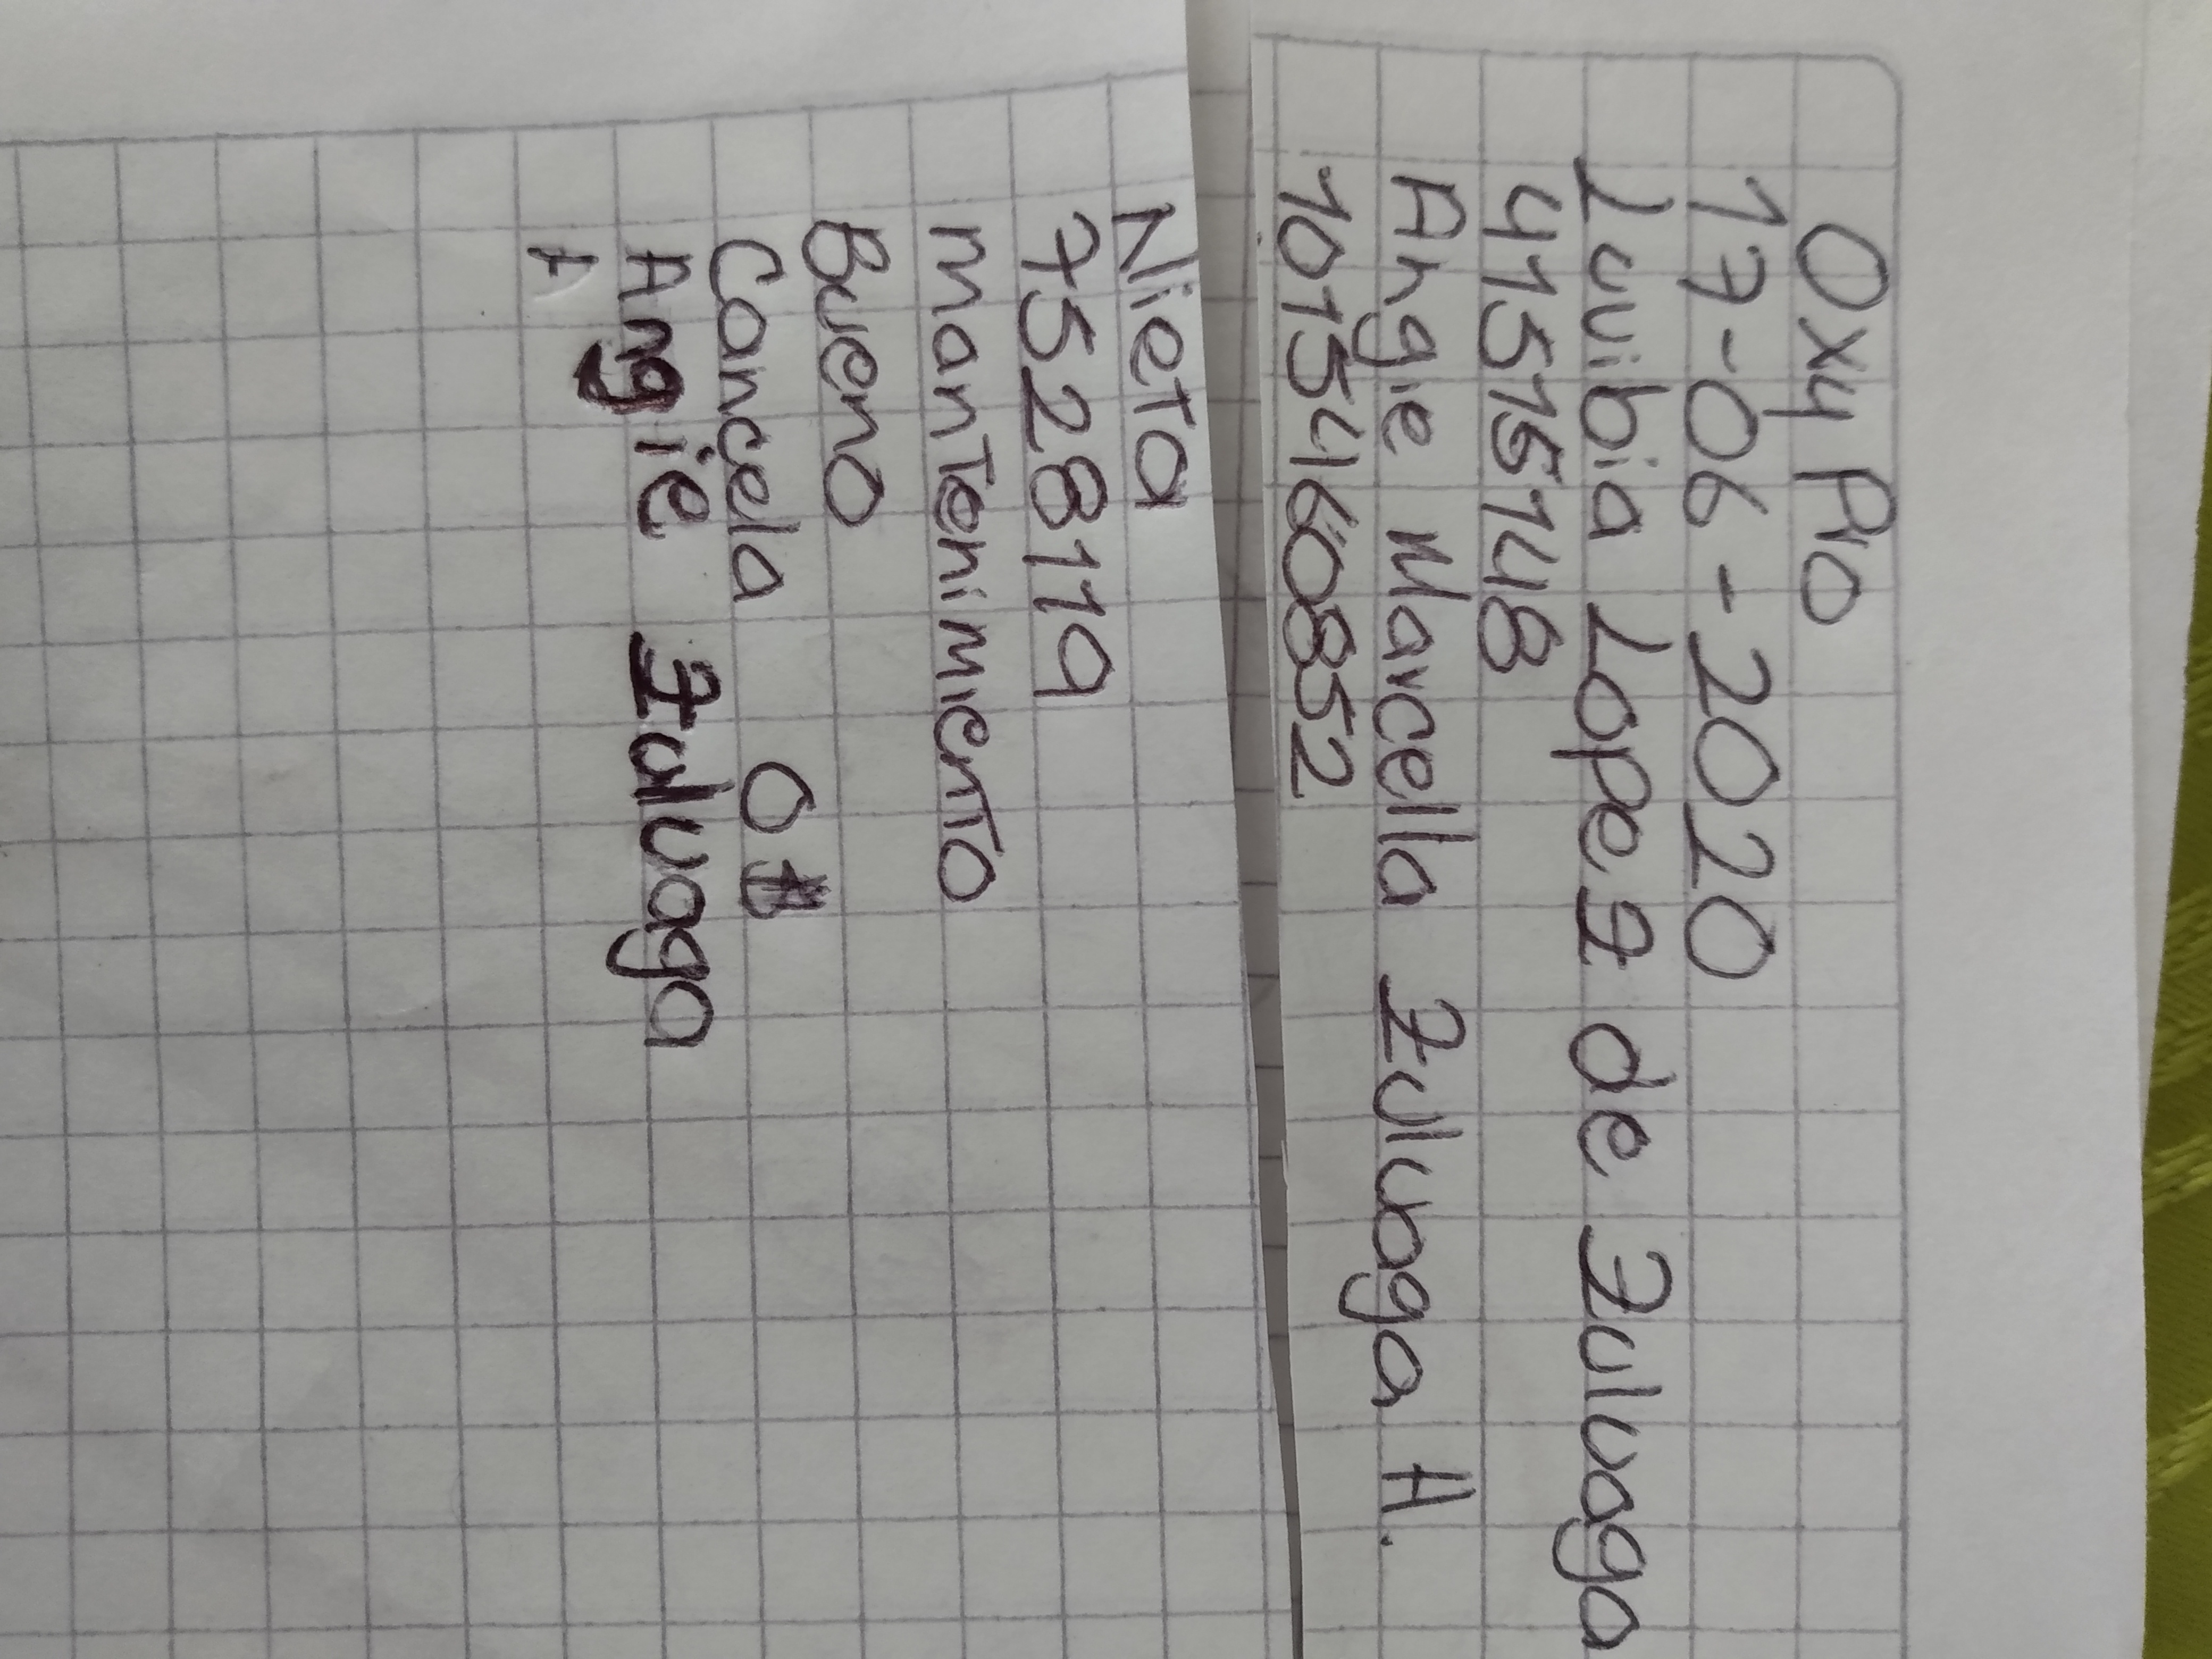 Oxy Pro
17-06-2020
Luvibia Lopez de Zuluaga
41515148
Angie Marcella Zuluaga H.
1015460852
Nieta
7528119
mantenimiento
Bueno
Cancela
Angie Zuluaga
A